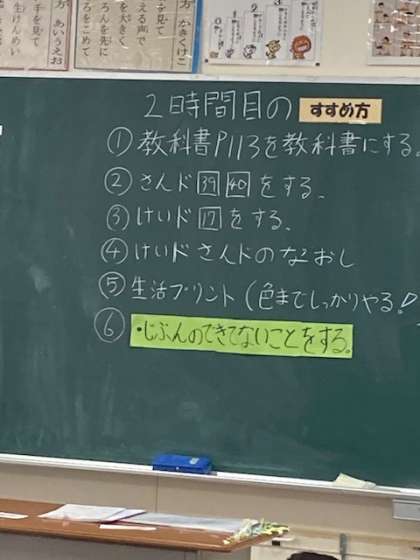 方 かきくけこ
方 あいうえお
2時間目の すすめ方
① 教科書P113を教科書にする。
② さんド 39 40 をする。
③ けいド 17 をする。
④ けいドさんドのなおし
⑤ 生活プリント(色までしっかりやる!)
⑥ ・じぶんのできてないことをする。